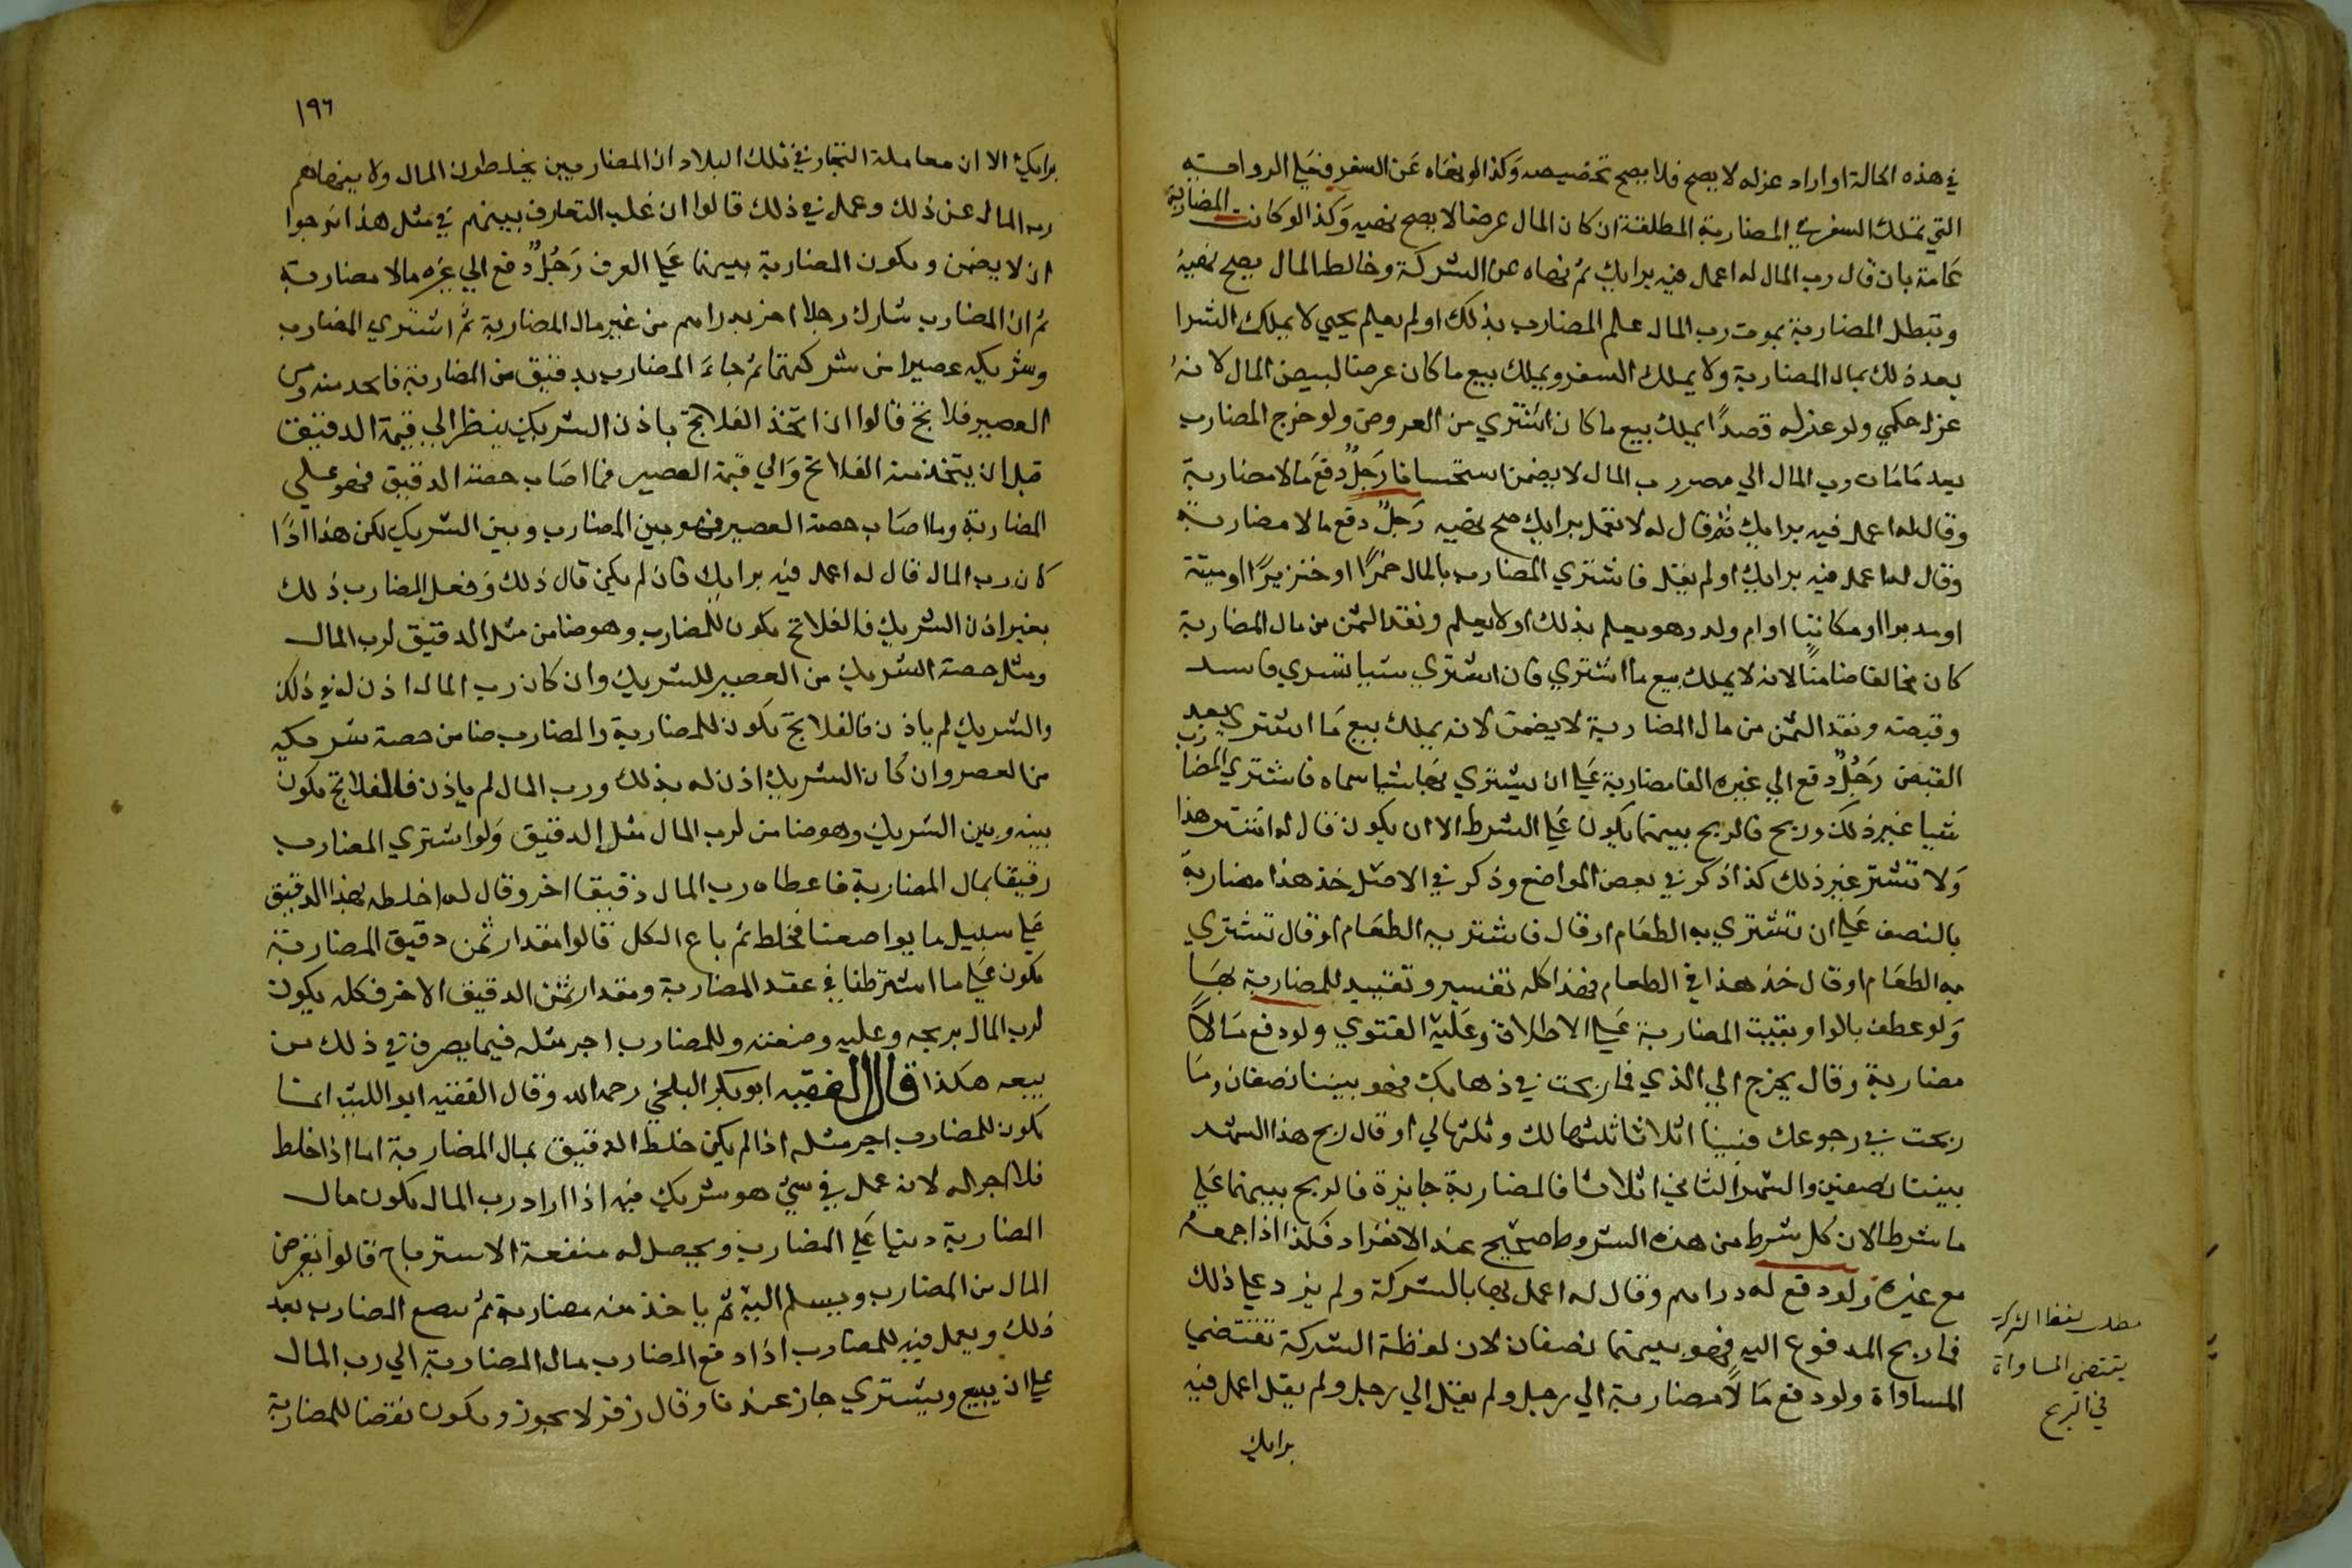 في هذه الحالة او اراد عزله لا يصح فلا يصح تخصيصه وكذا لو نهاه عن السفر وعلي الرواية
التي تملك السفر في المضاربة المطلقة ان كان المال عرضا لا يصح نهيه وكذا لو كانت المضاربة
عامة بان قال رب المال له اعمل فيه برايك ثم نهاه عن الشركة وخالط المال يصح نهيه
وتبطل المضاربة بموت رب المال علم المضارب بذلك او لم يعلم حتي لا يملك الشرا
بعد ذلك بمال المضاربة ولا يملك السفر ويملك بيع ما كان عرضا لبيض المال لانه
عزل حكمي ولو عزله قصدا يملك بيع ما كان اشتري من العروض ولو خرج المضارب
بعد ما مات رب المال الي مصر رب المال لا يضمن استحسانا رجل دفع مالا مضاربة
وقال له اعمل فيه برايك ثم قال له لا تعمل برايك صح نهيه رجل دفع مالا مضاربة
وقال له اعمل فيه برايك او لم يقل فاشتري المضارب بالمال خمرا او خنزيرا او ميتة
او مدبرا او مكاتبا او ام ولد وهو يعلم بذلك او لا يعلم ونقد الثمن من مال المضاربة
كان مخالفا ضامنا لانه لا يملك بيع ما اشتري فان اشتري شيا بشري فاسد
وقبضه ونقد الثمن من مال المضاربة لا يضمن لانه يملك بيع ما اشتري بعد
القبض رجل دفع الي غيره الفا مضاربة علي ان يشتري بها شيا سماه فاشتري المضارب
شيا غير ذلك وربح فالربح بينهما يكون علي الشرط الا ان يكون قال له اشتر هذا
ولا تشتر غير ذلك كذا ذكر في بعض المواضع وذكر في الاصل خذ هذا مضاربة
بالنصف علي ان تشتري به الطعام او قال فاشتر به الطعام او قال تشتري
به الطعام او قال خذ هذا في الطعام فهذا كله تفسير وتقييد للمضاربة بها
ولو عطف بالواو بقيت المضاربة علي الاطلاق وعليه الفتوي ولو دفع مالا
مضاربة وقال يخرج الي الذي فما ربحت في ذهابك فهو بيننا نصفان وما
ربحت في رجوعك فبيننا اثلاثا ثلثها لك وثلثها لي او قال ربح هذا الشهر
بيننا نصفين والشهر الثاني اثلاثا فالمضاربة جايزة فالربح بينهما علي
ما شرطا لان كل شرط من هذه الشروط صحيح عند الانفراد فكذا اذا جمعه
مع غيره ولو دفع له دراهم وقال له اعمل بها بالشركة ولم يزد علي ذلك
فما ربح المدفوع اليه فهو بينهما نصفان لان لفظة الشركة تقتضي
المساواة ولو دفع مالا مضاربة الي رجل ولم يقل الي رجل ولم يقل اعمل فيه
برايك
مطلب لفظ الشركة
يقتضي المساواة
في الربح
١٩٦
برايك الا ان معاملة التجار في تلك البلاد ان المضاربين يخلطون المال ولا ينهاهم
رب المال عن ذلك وعمل في ذلك قالوا ان غلب التعارف بينهم في مثل هذا نرجوا
ان لا يضمن وتكون المضاربة بينهما علي العرف رجل دفع الي غيره مالا مضاربة
ثم ان المضارب شارك رجلا اخر بدراهم من غير مال المضاربة ثم اشتري المضارب
وشريكه عصيرا من شركتهما ثم جاء المضارب بدقيق من المضاربة فاتخذ منه ومن
العصير فلاتج قالوا ان اتخذ الفلاتج باذن الشريك ينظر الي قيمة الدقيق
قبل ان يتخذ منه الفلاتج والي قيمة العصير فما اصاب حصة الدقيق فهو علي
المضاربة وما اصاب حصة العصير فهو بين المضارب وبين الشريك لكن هذا اذا
كان رب المال قال له اعمل فيه برايك فان لم يكن قال ذلك وفعل المضارب ذلك
بغير اذن الشريك فالفلاتج تكون للمضارب وهو ضامن مثل الدقيق لرب المال
ومثل حصة الشريك من العصير للشريك وان كان رب المال اذن له في ذلك
والشريك لم ياذن فالفلاتج تكون للمضاربة والمضارب ضامن حصة شريكه
من العصير وان كان الشريك اذن له بذلك ورب المال لم ياذن فالفلاتج تكون
بينه وبين الشريك وهو ضامن لرب المال مثل الدقيق ولو اشتري المضارب
دقيقا بمال المضاربة فاعطاه رب المال دقيقا اخر وقال له اخلطه بهذا الدقيق
علي سبيل ما تواضعنا فخلط ثم باع الكل قالوا مقدار ثمن دقيق المضاربة
تكون علي ما اشترطنا في عقد المضاربة ومقدار ثمن الدقيق الاخر فكله يكون
لرب المال بربحه وعليه وضيعته وللمضارب اجر مثله فيما يصرف في ذلك من
بيعه هكذا قال الفقيه ابو بكر البلخي رحمه الله وقال الفقيه ابو الليث انما
تكون للمضارب اجر مثله اذا لم يكن خلط الدقيق بمال المضاربة اما اذا خلط
فلا اجر له لانه عمل في شي هو شريك فيه اذا اراد رب المال تكون مال
المضاربة دينا علي المضارب ويحصل له منفعة الاسترباح قالوا يقرض
المال من المضارب ويسلم اليه ثم ياخذ منه مضاربة ثم يبضع المضارب بعد
ذلك ويعمل فيه للمضارب اذا دفع المضارب مال المضاربة الي رب المال
علي ان يبيع ويشتري جاز عندنا وقال زفر لا يجوز وتكون نقضا للمضاربة